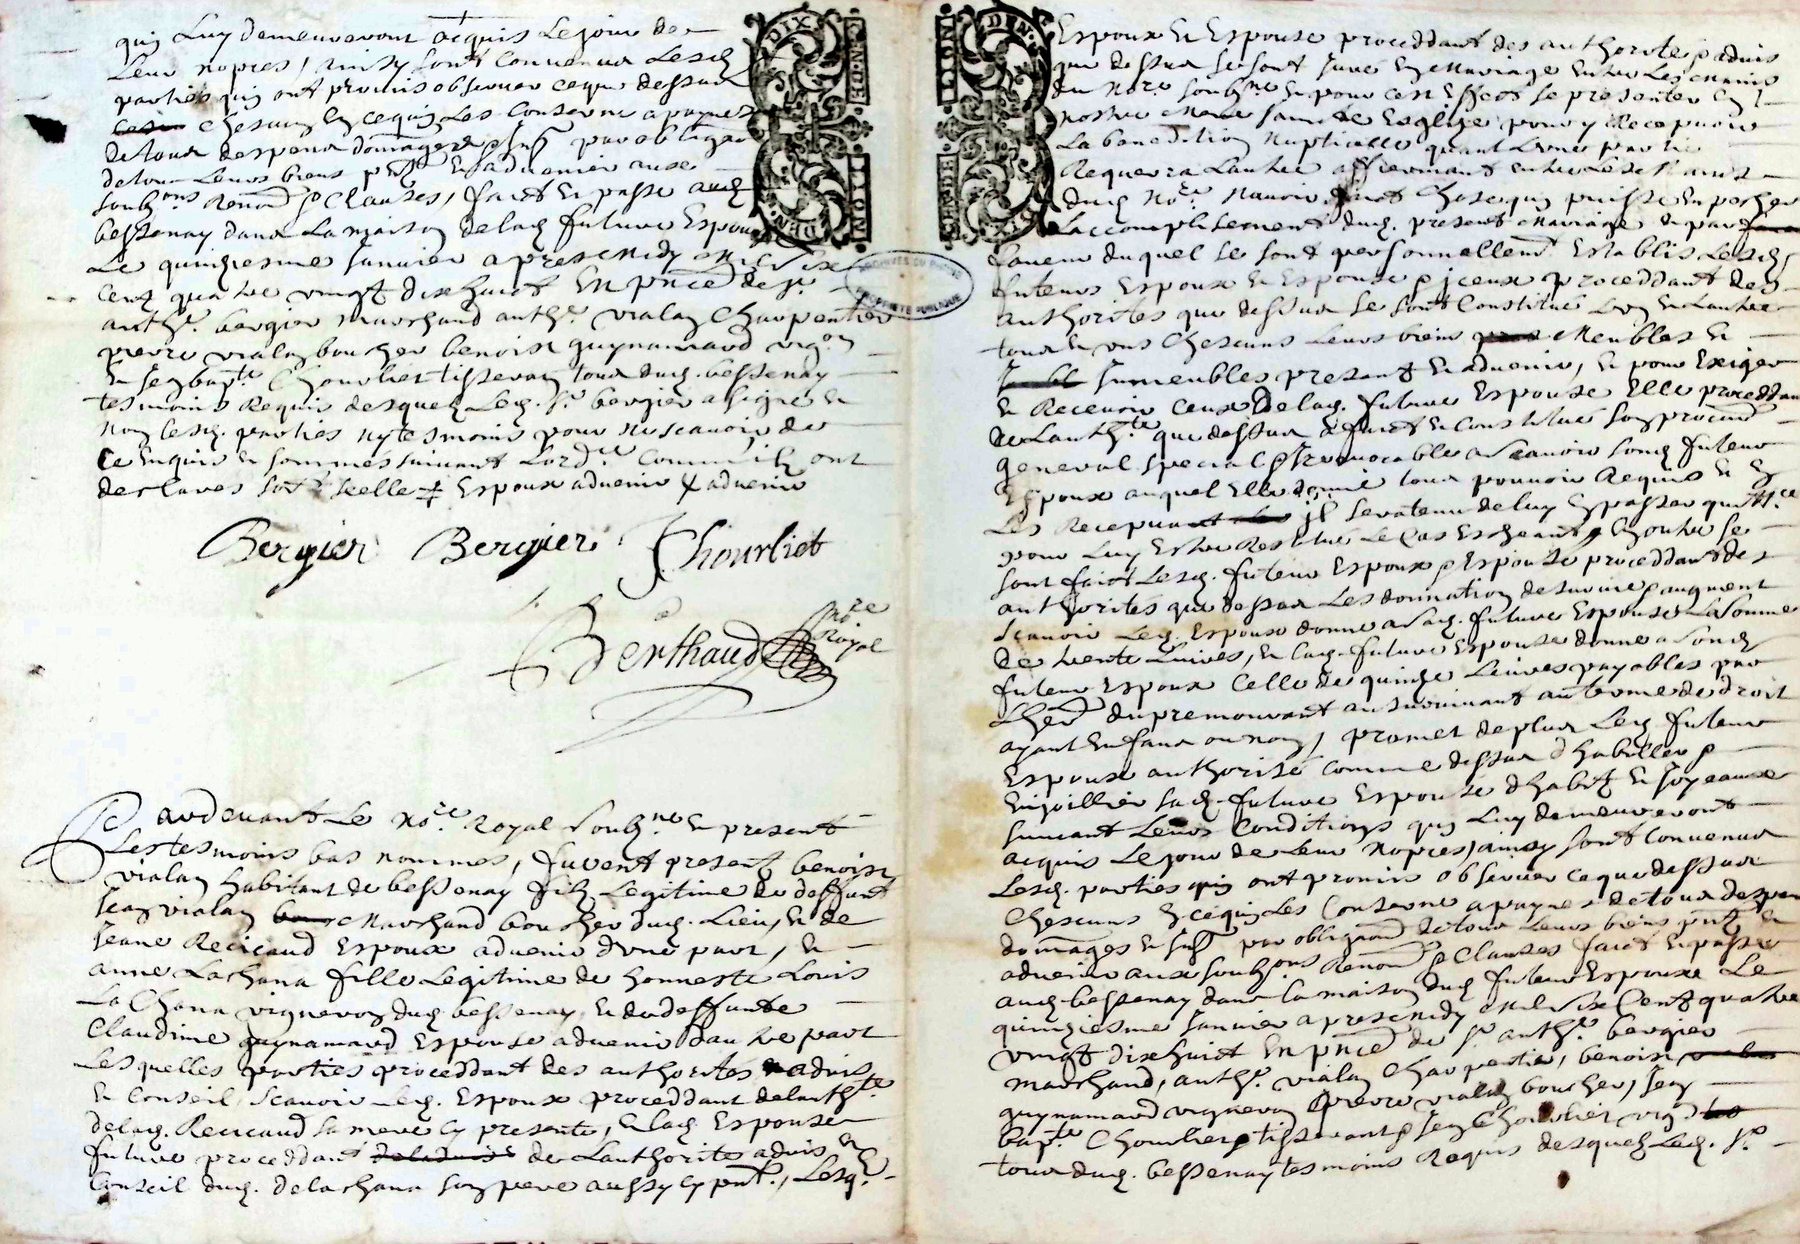 quy Luy demeureront acquis Le jour de
Leur nopces, ainsy sont Convenus Lesd
parties quy ont promis observer ceque dessus
chescung En cequy Les Conserne a payne
de tous despens dommages par obligaõn
de tous Leurs biens pñts Et advenir aux
soubons Renonõn & Clauses, faict Et passe aud
bessenay dans La maison de lad future Espouse
Le quinziesme Janvier apres midy mil six
Cent quatre vingt dix huict En pñce de sr.
anthe. bergier marchand anthe. vialay Charpentier
pierre vialay boucher benoist guynamard vigon
Et Jean bapte Chourliet tisseran tous dud. bessenay
tesmoins Requis desquels Led. sr. bergier a signe Et
non lesd. parties ny tesmoins pour ne scavoir de
ce Enquis Et sommes suivant Lordce Commis ont
desclares scelle ‡ Espoux advenir X advenir
Bergier Bergier JChourliet
Berthaud nore Royal
Pardevant Le nore. Royal soubne Et present
Les tesmoins bas nommes, furent present benoist
vialay habitant de bessenay filz Legitime de deffunt
Jean vialay marchand boucher dud. Lieu, Et de
Jeane Recicaud Espoux advenir dune part, Et
anne Lachana fille Legitime de honneste Louis
La Chana vigneron dud bessenay, Et de deffunte
Claudine guynamard Espouse advenir dautre part
Lesquelles parties proceddant des authorites advis
Et Conseil, scavoir Led. Espoux proceddant de lauthte
de lad. Recicaud sa mere cy presente, Et lad Espouse
future proceddant de Lauthorite advis Et
Conseil dud. de lachana son pere aussy cy pnt., Lesd.
Espoux Et Espouse proceddant des authorites & advis
que dessus se sont Jures En mariage Entre Les mains
du nore. soubne Et pour cest Effect se presenter En
nostre mere sainte Esglize pour y Recepvoir
La benediction nuptialle quant Lune partie
Requerra Lautre affirmant Entre Les mains
dud nore. navoir faict chose quy puisse Enpescher
Laccomplisement dud. present mariage Et par
faveur duquel se sont personnellemt Establis Lesd
futeurs Espoux Et Espouse & iceux proceddant des
authorites que dessus se sont Constitue Lun Et Lautre
tous Et uns Chescuns Leurs biens Meubles Et
Immeubles presant Et advenir, Et pour Exiger
Et Recevoir Ceux de lad. future Espouse Elle proceddan
de Lauthte que dessus a faict Et constitue son procur
general special & irrevocable a scavoir sond futeur
Espoux auquel Elle donne tous pouvoir Requis Et En
Les Recepvant il sera tenu de luy En passer quittce
pour Luy Estre Restitue Le Cas Escheant & En outre se
sont faict Lesd. futeur Espoux & Espouse proceddant des
authorites que dessus Les donnation de survie & augment
scavoir Led. Espoux donne a lad. future Espouse La somme
de trente Livres, Et lad. future Espouse donne a sond
futeur Espoux Celle de quinze Livres payables par
Lherõn du premourant au survivant au terme de droit
ayant Enfans ou non, promet de plus Led futeur
Espoux authorise comme dessus dhabiller &
Enjoillier sad. future Espouse dhabit Et Joyeaux
suivant Leurs Conditions quy Luy demeureront
acquis Le jour de Leur nopces, ainsy sont Convenus
Lesd. parties quy ont promis observer ceque dessus
Chescuns En cequy Les Conserne a payne de tous despens
domages par obligaõn de tous Leurs biens pñts Et
advenir aux soubons Renonõn & Clauses faict Et passe
aud. bessenay dans la maison dud futeur Espoux Le
quinziesme Janvier apres midy mil six Cent quatre
vingt dix huict En pñce de sr. anthe. bergier
marchand, anthe. vialay Charpentier, benoist
guynamard vigneron pierre vialay boucher, Jean
bapte. Chourliet tisserant & Jean Chourliet vigon
tous dud. bessenay tesmoins Requis desquels Led. sr.